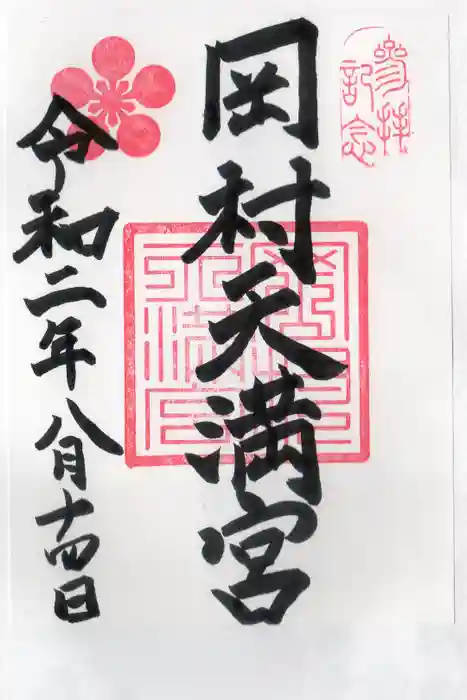 参拝
記念
岡村天満宮
令和二年八月十四日